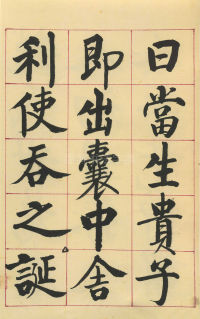 日當生貴子
即出囊中舎
利使吞之誕